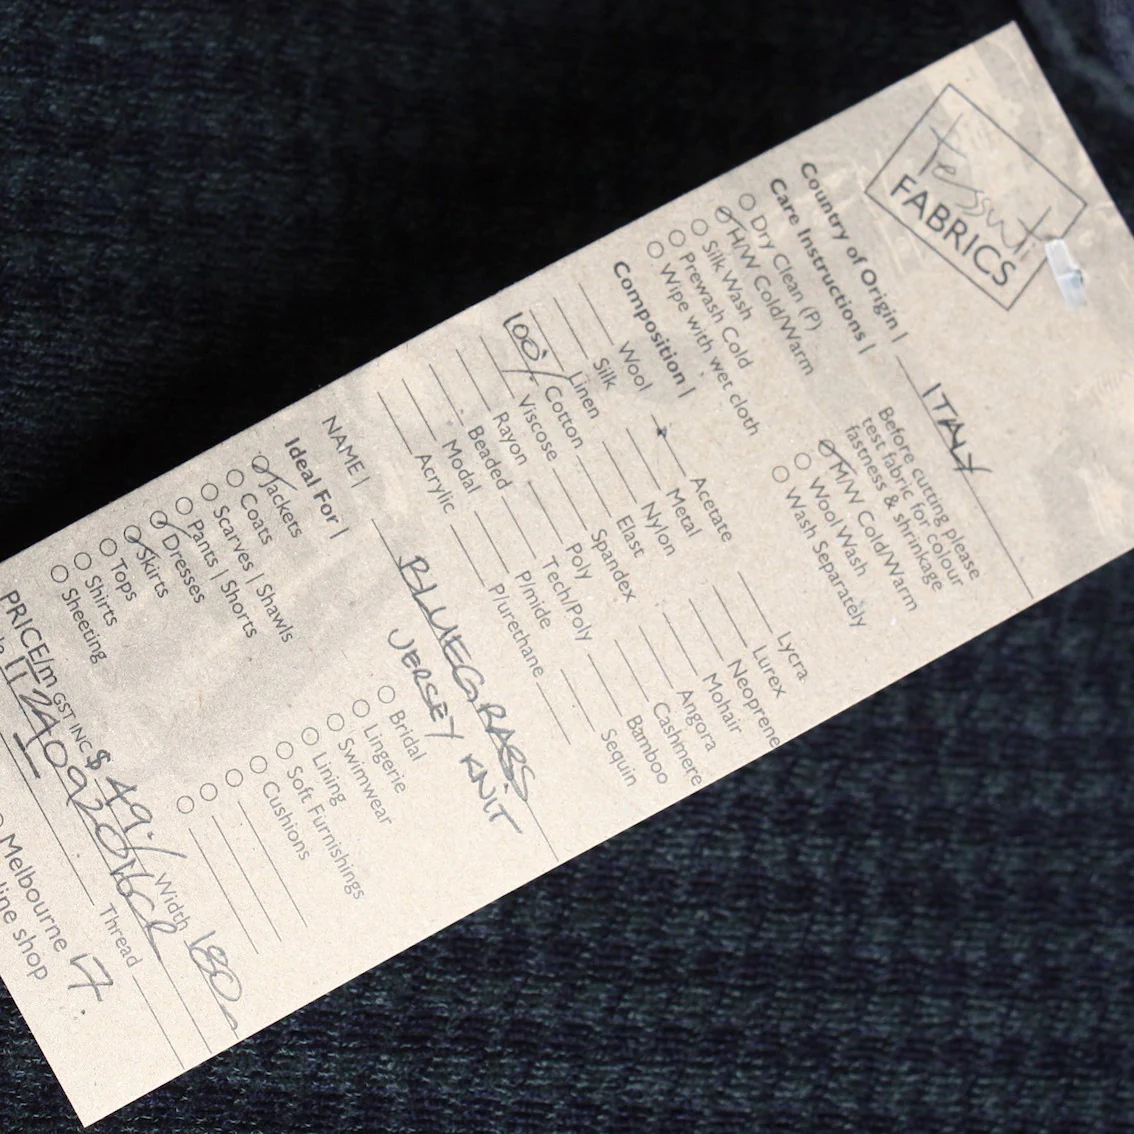 tessuti
FABRICS
Country of Origin | ITALY
Care Instructions |
Dry Clean (P)
H/W Cold/Warm
Silk Wash
Prewash Cold
Wipe with wet cloth
Before cutting please
test fabric for colour
fastness & shrinkage
M/W Cold/Warm
Wool Wash
Wash Separately
Composition |
Wool
Silk
Linen
100% Cotton
Viscose
Rayon
Beaded
Modal
Acrylic
Acetate
Metal
Nylon
Elast
Spandex
Poly
Tech/Poly
P/mide
P/urethane
Lycra
Lurex
Neoprene
Mohair
Angora
Cashmere
Bamboo
Sequin
NAME | BLUEGRASS
JERSEY KNIT
Ideal For |
Jackets
Coats
Scarves | Shawls
Pants | Shorts
Dresses
Skirts
Tops
Shirts
Sheeting
Bridal
Lingerie
Swimwear
Lining
Soft Furnishings
Cushions
PRICE/m GST INC $ 49.- Width 180
Thread
Melbourne 17